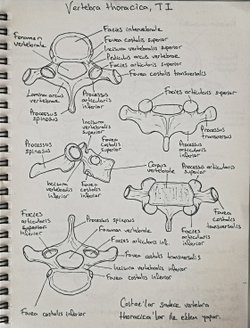 Vertebra thoracica, T I
Facies intervertebralis
Foramen vertebrale
Fovea costalis superior
Incisura vertebralis superior
Pediculus arcus vertebrae
Fovea costalis transversalis
Lamina arcus vertebrae
Processus articularis inferior
Facies articularis superior
Processus spinosus
Incisura vertebralis superior
Processus transversus
Fovea costalis superior
Processus articularis inferior
Processus spinosus
Corpus vertebrale
Processus articularis superior
Incisura vertebralis inferior
Fovea costalis inferior
Facies articularis superior
Processus spinosus
Foramen vertebrale
Fovea costalis transversalis
Facies articularis inf.
Processus articularis inferior
Fovea costalis transversalis
Incisura vertebralis inferior
Fovea costalis inferior
Fovea costalis inferior
Costae'lar sadece vertebra
thoracica'lar ile eklem yapar.